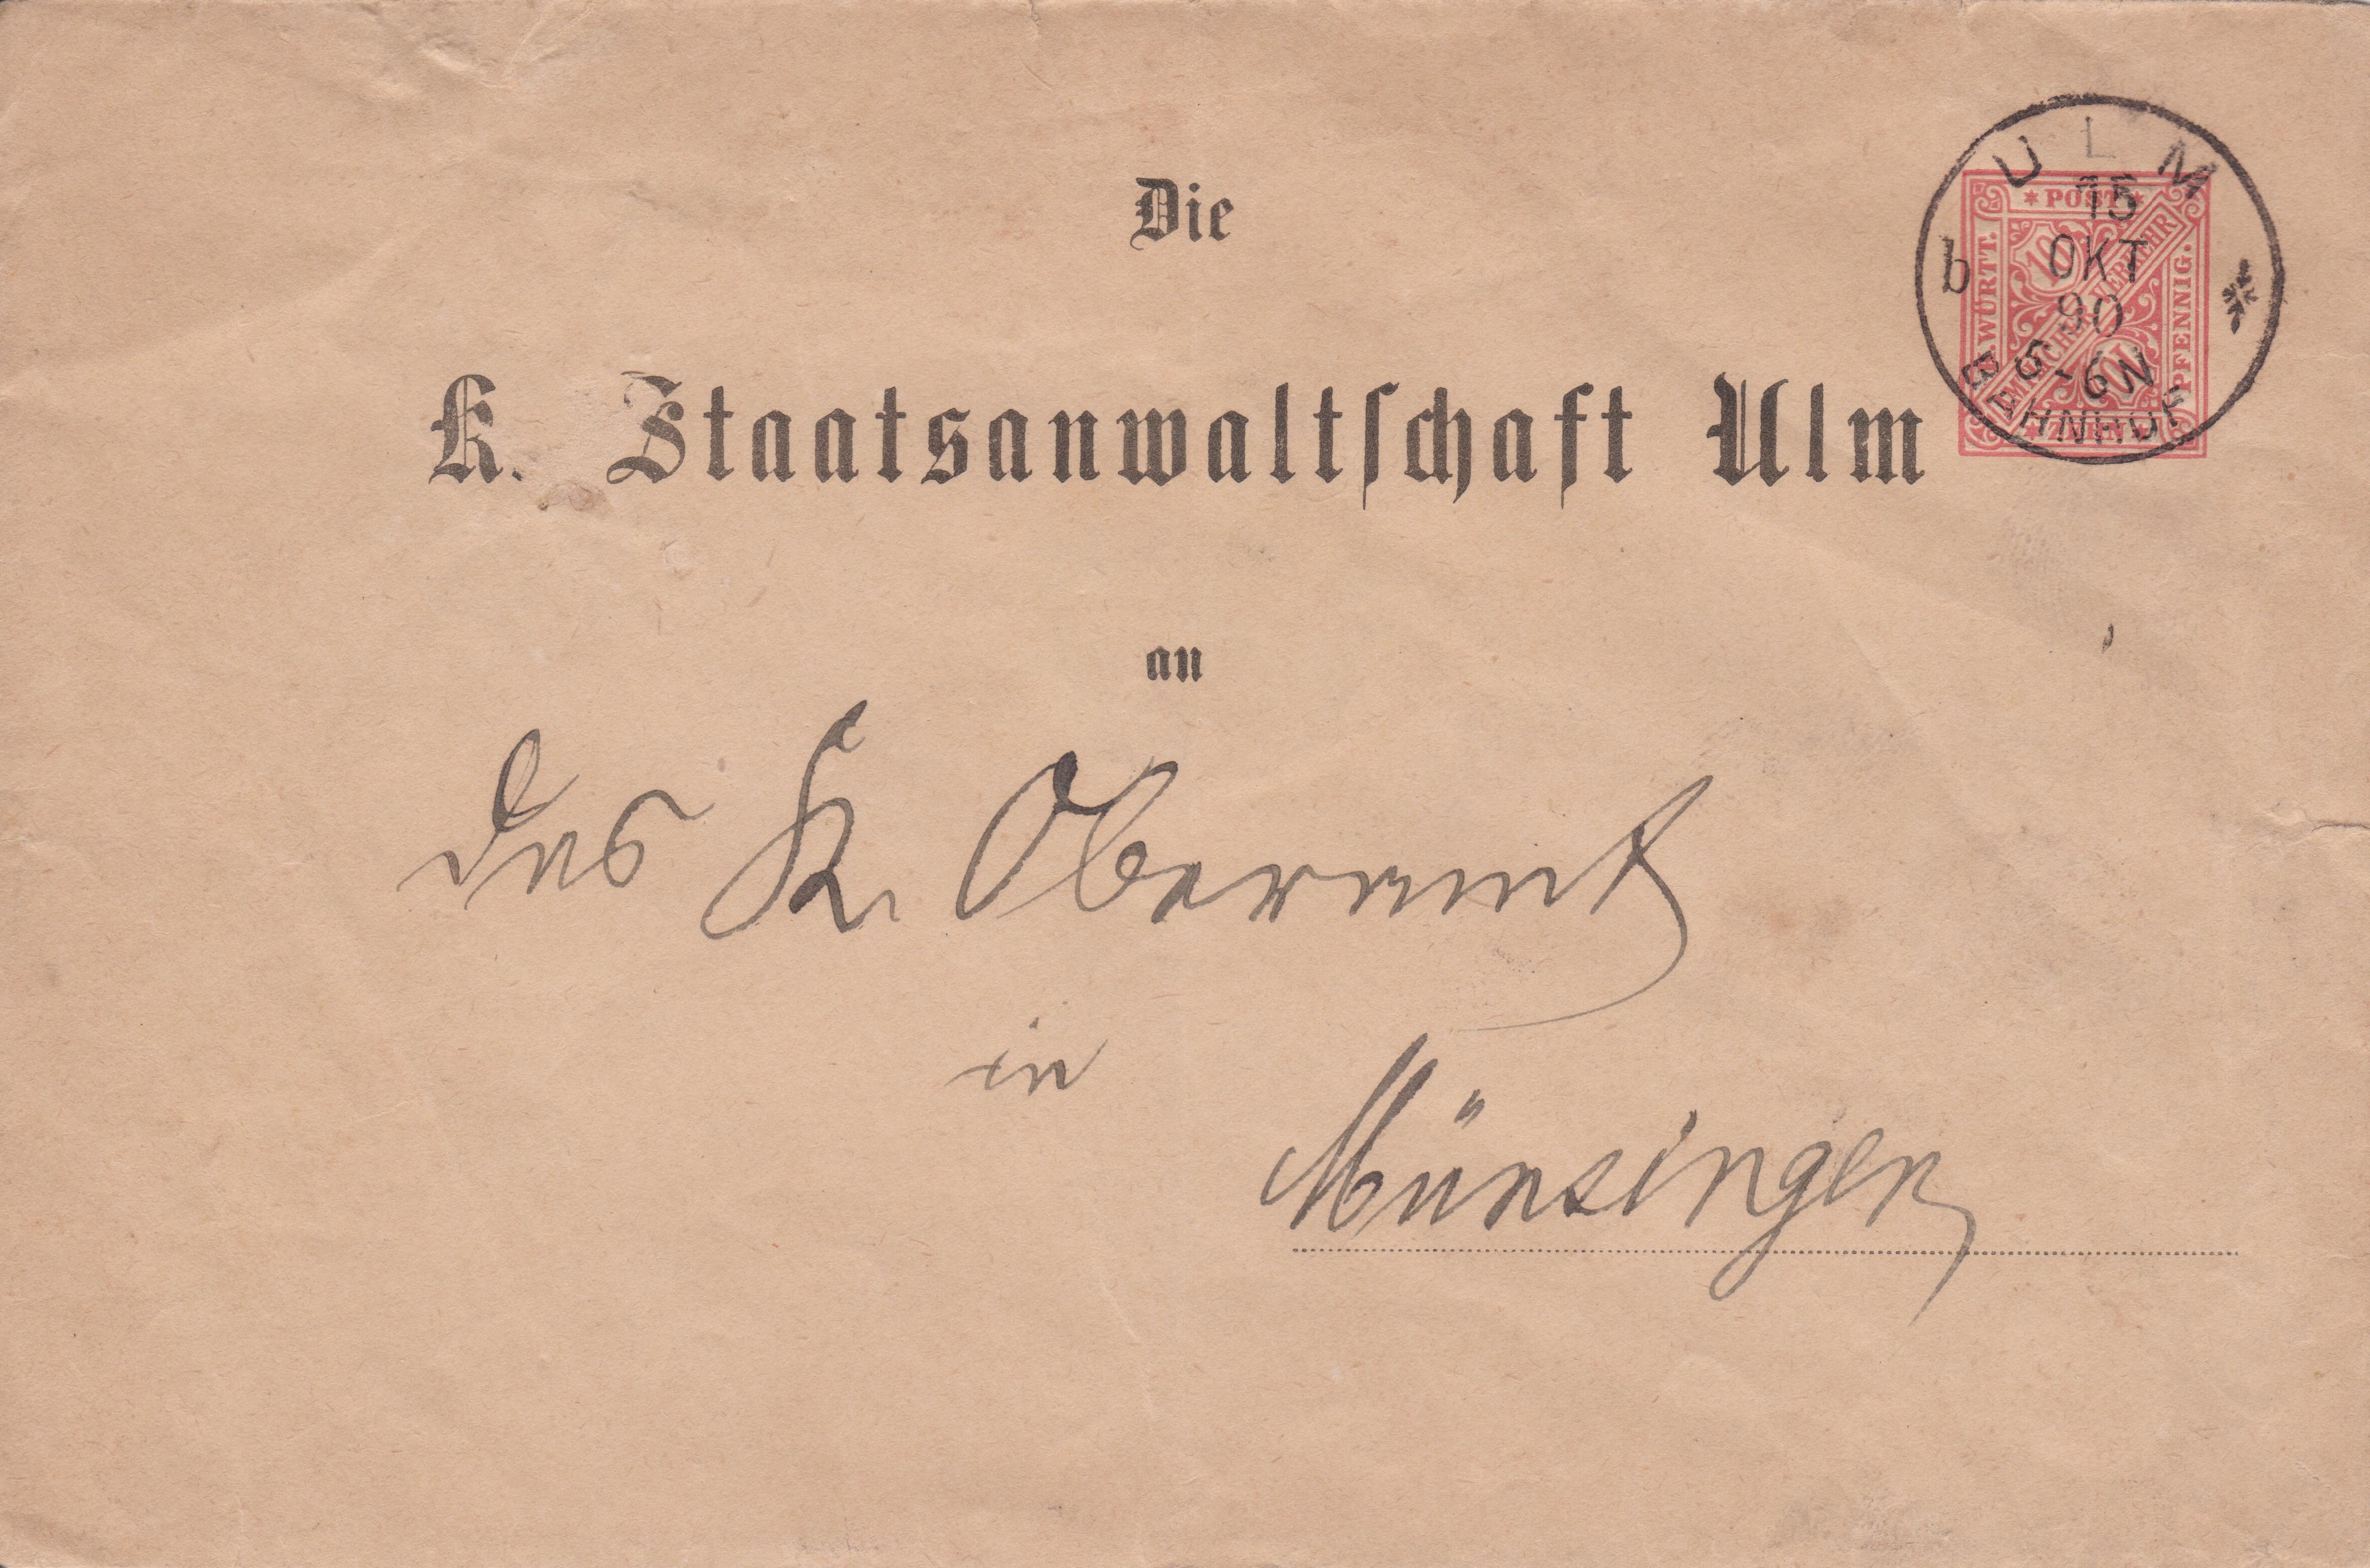 Die
K. Staatsanwaltschaft Ulm
an
das K. Oberamt
in
Münsingen
ULM
15
OKT
90
5-6N
b
BAHNHOF
* POST *
K. WÜRTT.
AMTLICHER VERKEHR
10
10
PFENNIG.
* ZEHN *